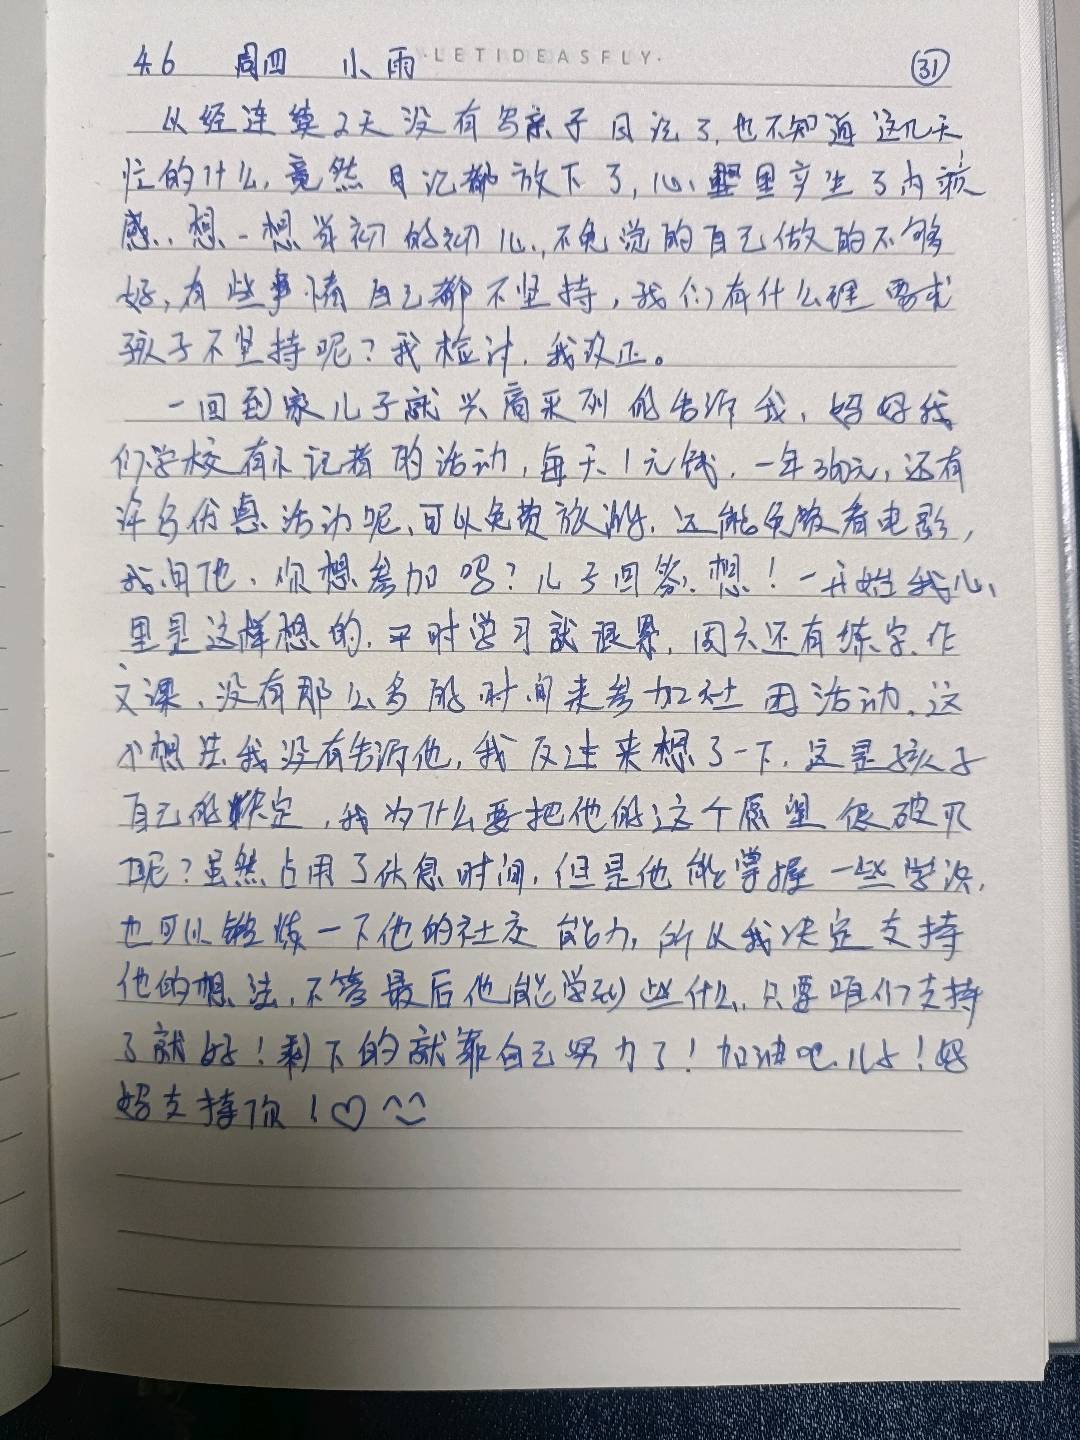 4.6 周四 小雨 ·LETIDEASFLY· 31
以经连续2天没有写亲子日记了,也不知道这几天
忙的什么,竟然日记都放下了,心里产生了内疚
感,想一想当初的初心,不免觉的自己做的不够
好,有些事情自己都不坚持,我们有什么理要求
孩子不坚持呢?我检讨,我改正。
一回到家儿子就兴高采列的告诉我,妈妈我
们学校有小记者的活动,每天1元钱,一年360元,还有
许多优惠活动呢,可以免费旅游,还能免费看电影,
我问他,你想参加吗?儿子回答:想!一开始我心
里是这样想的,平时学习就很累,周六还有练字、作
文课,没有那么多的时间来参加社团活动,这
个想法我没有告诉他,我反过来想了一下,这是孩子
自己的决定,我为什么要把他的这个愿望给破灭
呢?虽然占用了休息时间,但是他能掌握一些学识,
也可以锻炼一下他的社交能力,所以我决定支持
他的想法,不管最后他能学到些什么,只要咱们支持
了就好!剩下的就靠自己努力了!加油吧儿子!妈
妈支持你!♡^^